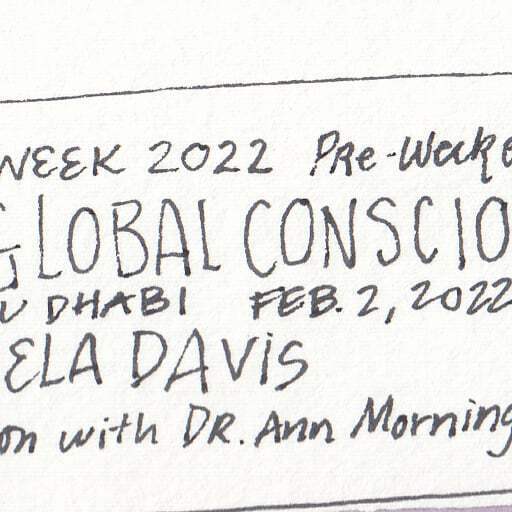 WEEK 2022 PRe-Weeke
GLOBAL CONSCIO
U DHABI FEB. 2, 2022
ELA DAVIS
on with DR. Ann Morning